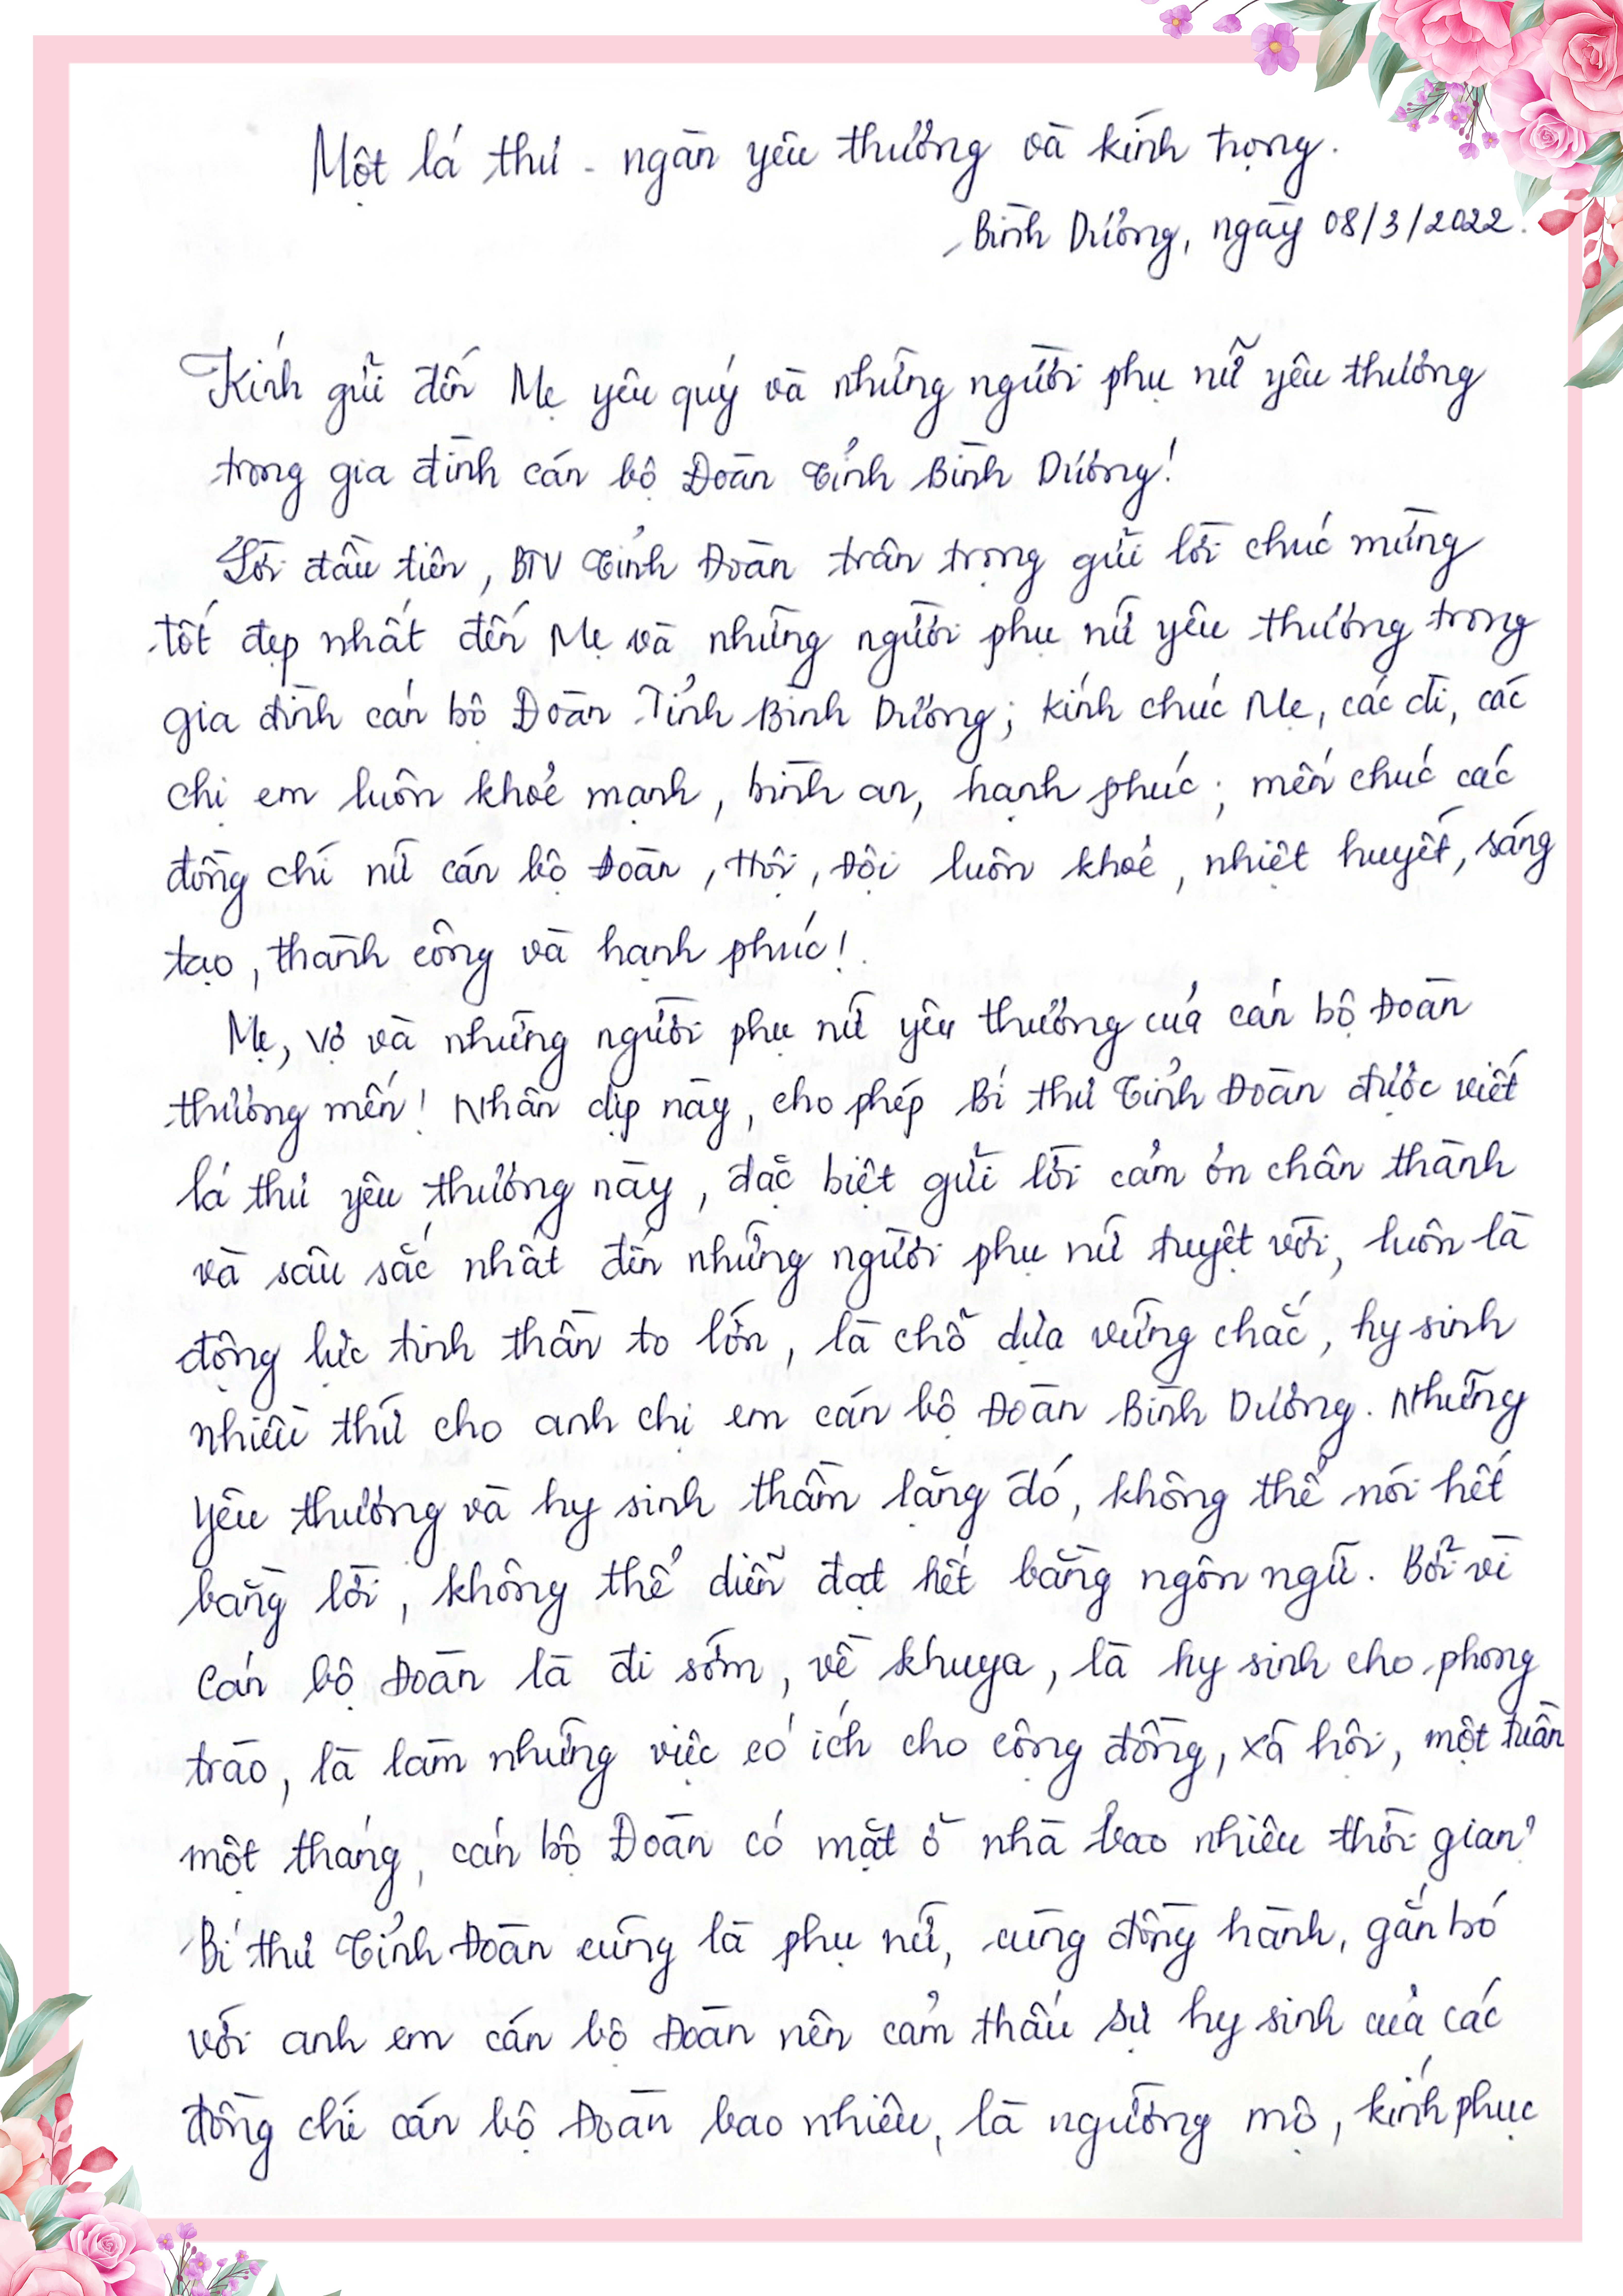 Một lá thư - ngàn yêu thương và kính trọng.
Bình Dương, ngày 08/3/2022.
Kính gửi đến Mẹ yêu quý và những người phụ nữ yêu thương
trong gia đình cán bộ Đoàn Tỉnh Bình Dương!
Lời đầu tiên, BTV Tỉnh Đoàn trân trọng gửi lời chúc mừng
tốt đẹp nhất đến Mẹ và những người phụ nữ yêu thương trong
gia đình cán bộ Đoàn Tỉnh Bình Dương; kính chúc Mẹ, các dì, các
chị em luôn khoẻ mạnh, bình an, hạnh phúc; mến chúc các
đồng chí nữ cán bộ Đoàn, Hội, Đội luôn khoẻ, nhiệt huyết, sáng
tạo, thành công và hạnh phúc!
Mẹ, vợ và những người phụ nữ yêu thương của cán bộ Đoàn
thương mến! Nhân dịp này, cho phép Bí thư Tỉnh Đoàn được viết
lá thư yêu thương này, đặc biệt gửi lời cảm ơn chân thành
và sâu sắc nhất đến những người phụ nữ tuyệt vời, luôn là
động lực tinh thần to lớn, là chỗ dựa vững chắc, hy sinh
nhiều thứ cho anh chị em cán bộ Đoàn Bình Dương. Những
yêu thương và hy sinh thầm lặng đó, không thể nói hết
bằng lời, không thể diễn đạt hết bằng ngôn ngữ. Bởi vì
cán bộ Đoàn là đi sớm, về khuya, là hy sinh cho phong
trào, là làm những việc có ích cho cộng đồng, xã hội, một tuần
một tháng, cán bộ Đoàn có mặt ở nhà bao nhiêu thời gian?
Bí thư Tỉnh Đoàn cũng là phụ nữ, cùng đồng hành, gắn bó
với anh em cán bộ Đoàn nên cảm thấu sự hy sinh của các
đồng chí cán bộ Đoàn bao nhiêu, là ngưỡng mộ, kính phục